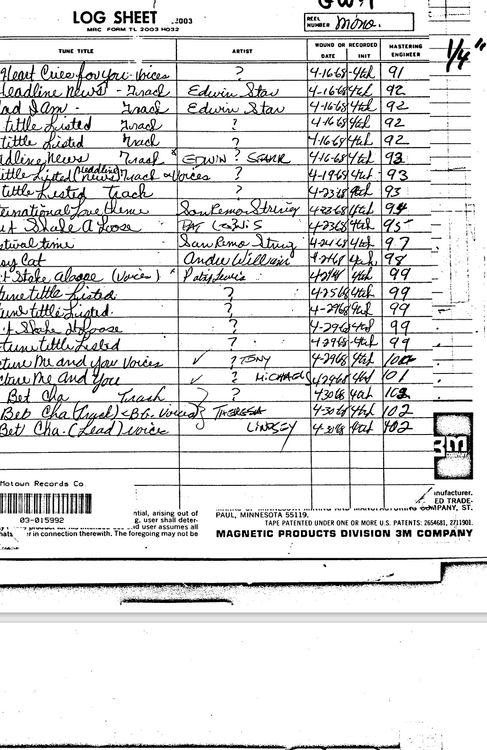 GW-1
LOG SHEET 2003
MRC FORM TL 2003 H032
REEL NUMBER mono.
1/4"
TUNE TITLE ARTIST WOUND OR RECORDED DATE INIT MASTERING ENGINEER
Heart Cries for You - Voices ? 4-16-68 91
Headline News - Track Edwin Star 4-16-68 92
ad I Am - Track Edwin Star 4-16-68 92
tittle Listed Track ? 4-16-68 92
tittle Listed Track ? 4-16-68 92
adline News Track * EDWIN ? STARR 4-16-68 93
ittle Listed (Headline News) Track + Voices 4-19-68 93
tittle Listed Track ? 4-23-68 93
ternational Love Theme San Remo Strings 4-23-68 94
t Shake A Loose PAT LEWIS 4-23-68 95
stival time San Remo String 4-24-68 97
oy Cat Andre William 98
t Shake aloose (Voices) * Pat Lewis 99
tune tittle Listed. ? 4-25-68 99
tune tittle Listed. ? 4-29-68 99
t Shake It Loose ? 4-29-68 99
tune tittle Listed ? 4-29-68 99
cture Me and You Voices ✓ ? TONY 4-29-68
cture Me And You ✓ ? MICHAEL 4-29-68 101
Bet Cha Track ? 4-30-68
Bet Cha (Track) + BG. Voices THERESA 4-30-68 102
Bet Cha. (Lead) voice LINDSEY 4-30-68 102
Motown Records Co.
03-015992
3m
ntial, arising out of
g, user shall deter-
nd user assumes all
r in connection therewith. The foregoing may not be
nufacturer.
ED TRADE-
MINING AND MANUFACTURING COMPANY, ST.
PAUL, MINNESOTA 55119.
TAPE PATENTED UNDER ONE OR MORE U.S. PATENTS: 2654681, 2711901.
MAGNETIC PRODUCTS DIVISION 3M COMPANY